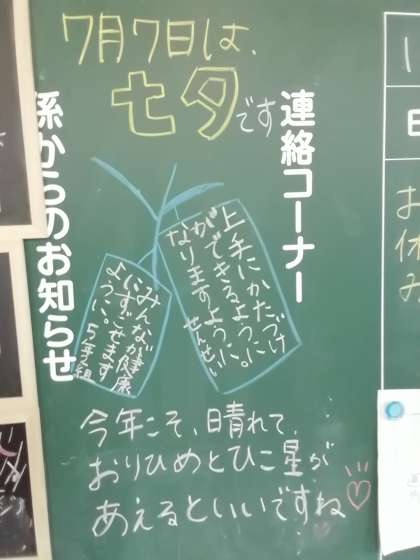 7月7日は、
七夕です
連絡コーナー
係からのお知らせ
上手にかたづけ
ができるように
なりますように。
せんせい
みんなが健康
にすごせます
ように。
5年2組
今年こそ、日晴れて、
おりひめとひこ星が
あえるといいですね
お休み